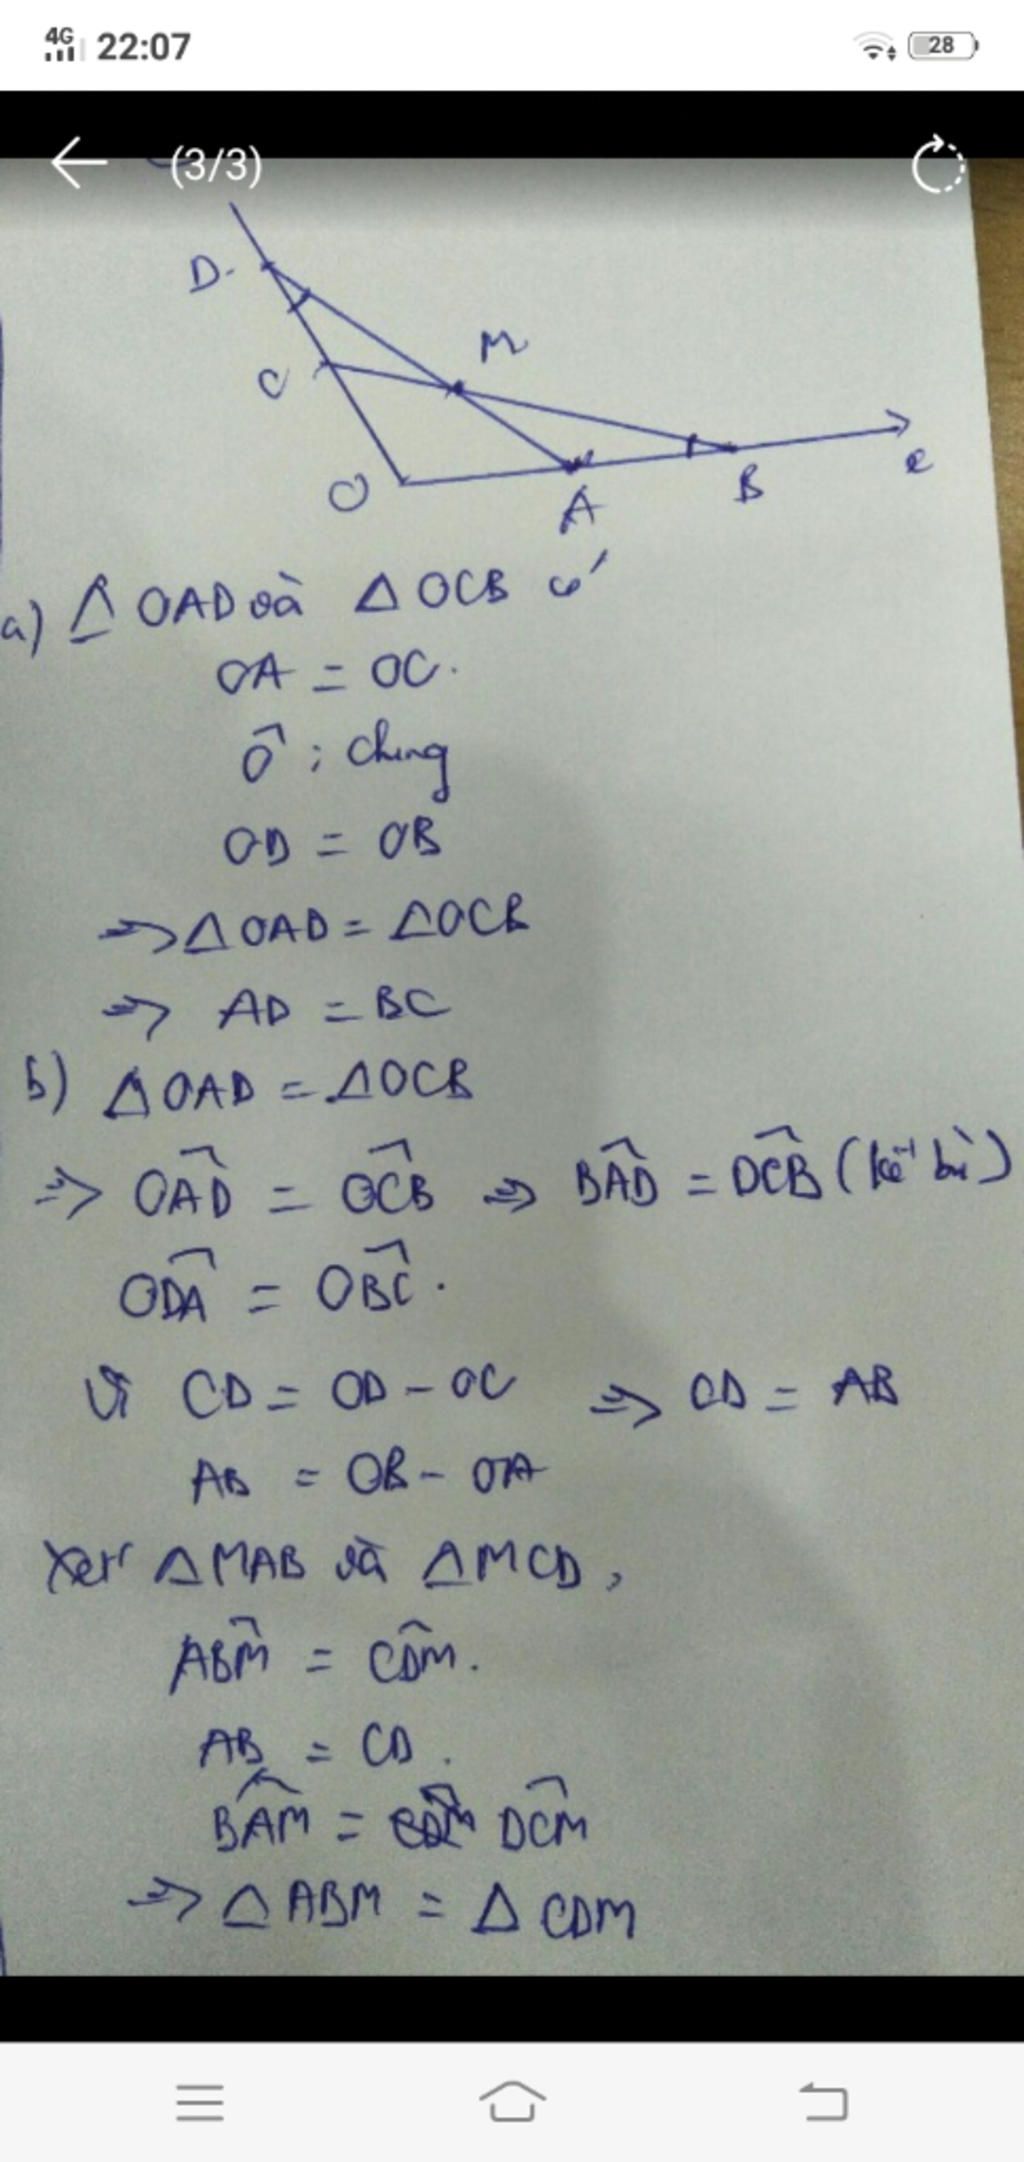 4G 22:07 28
(3/3)
D
M
C
O
A
B
a) Δ OAD và Δ OCB có
OA = OC.
Ô ; chung
OD = OB
=> Δ OAD = Δ OCB
=> AD = BC
b) Δ OAD = Δ OCB
=> OAD = OCB => BAD = DCB (kề bù)
ODA = OBC.
Vì CD = OD - OC => CD = AB
AB = OB - OA
Xét Δ MAB và Δ MCD,
ABM = CDM.
AB = CD.
BAM = DCM
=> Δ ABM = Δ CDM